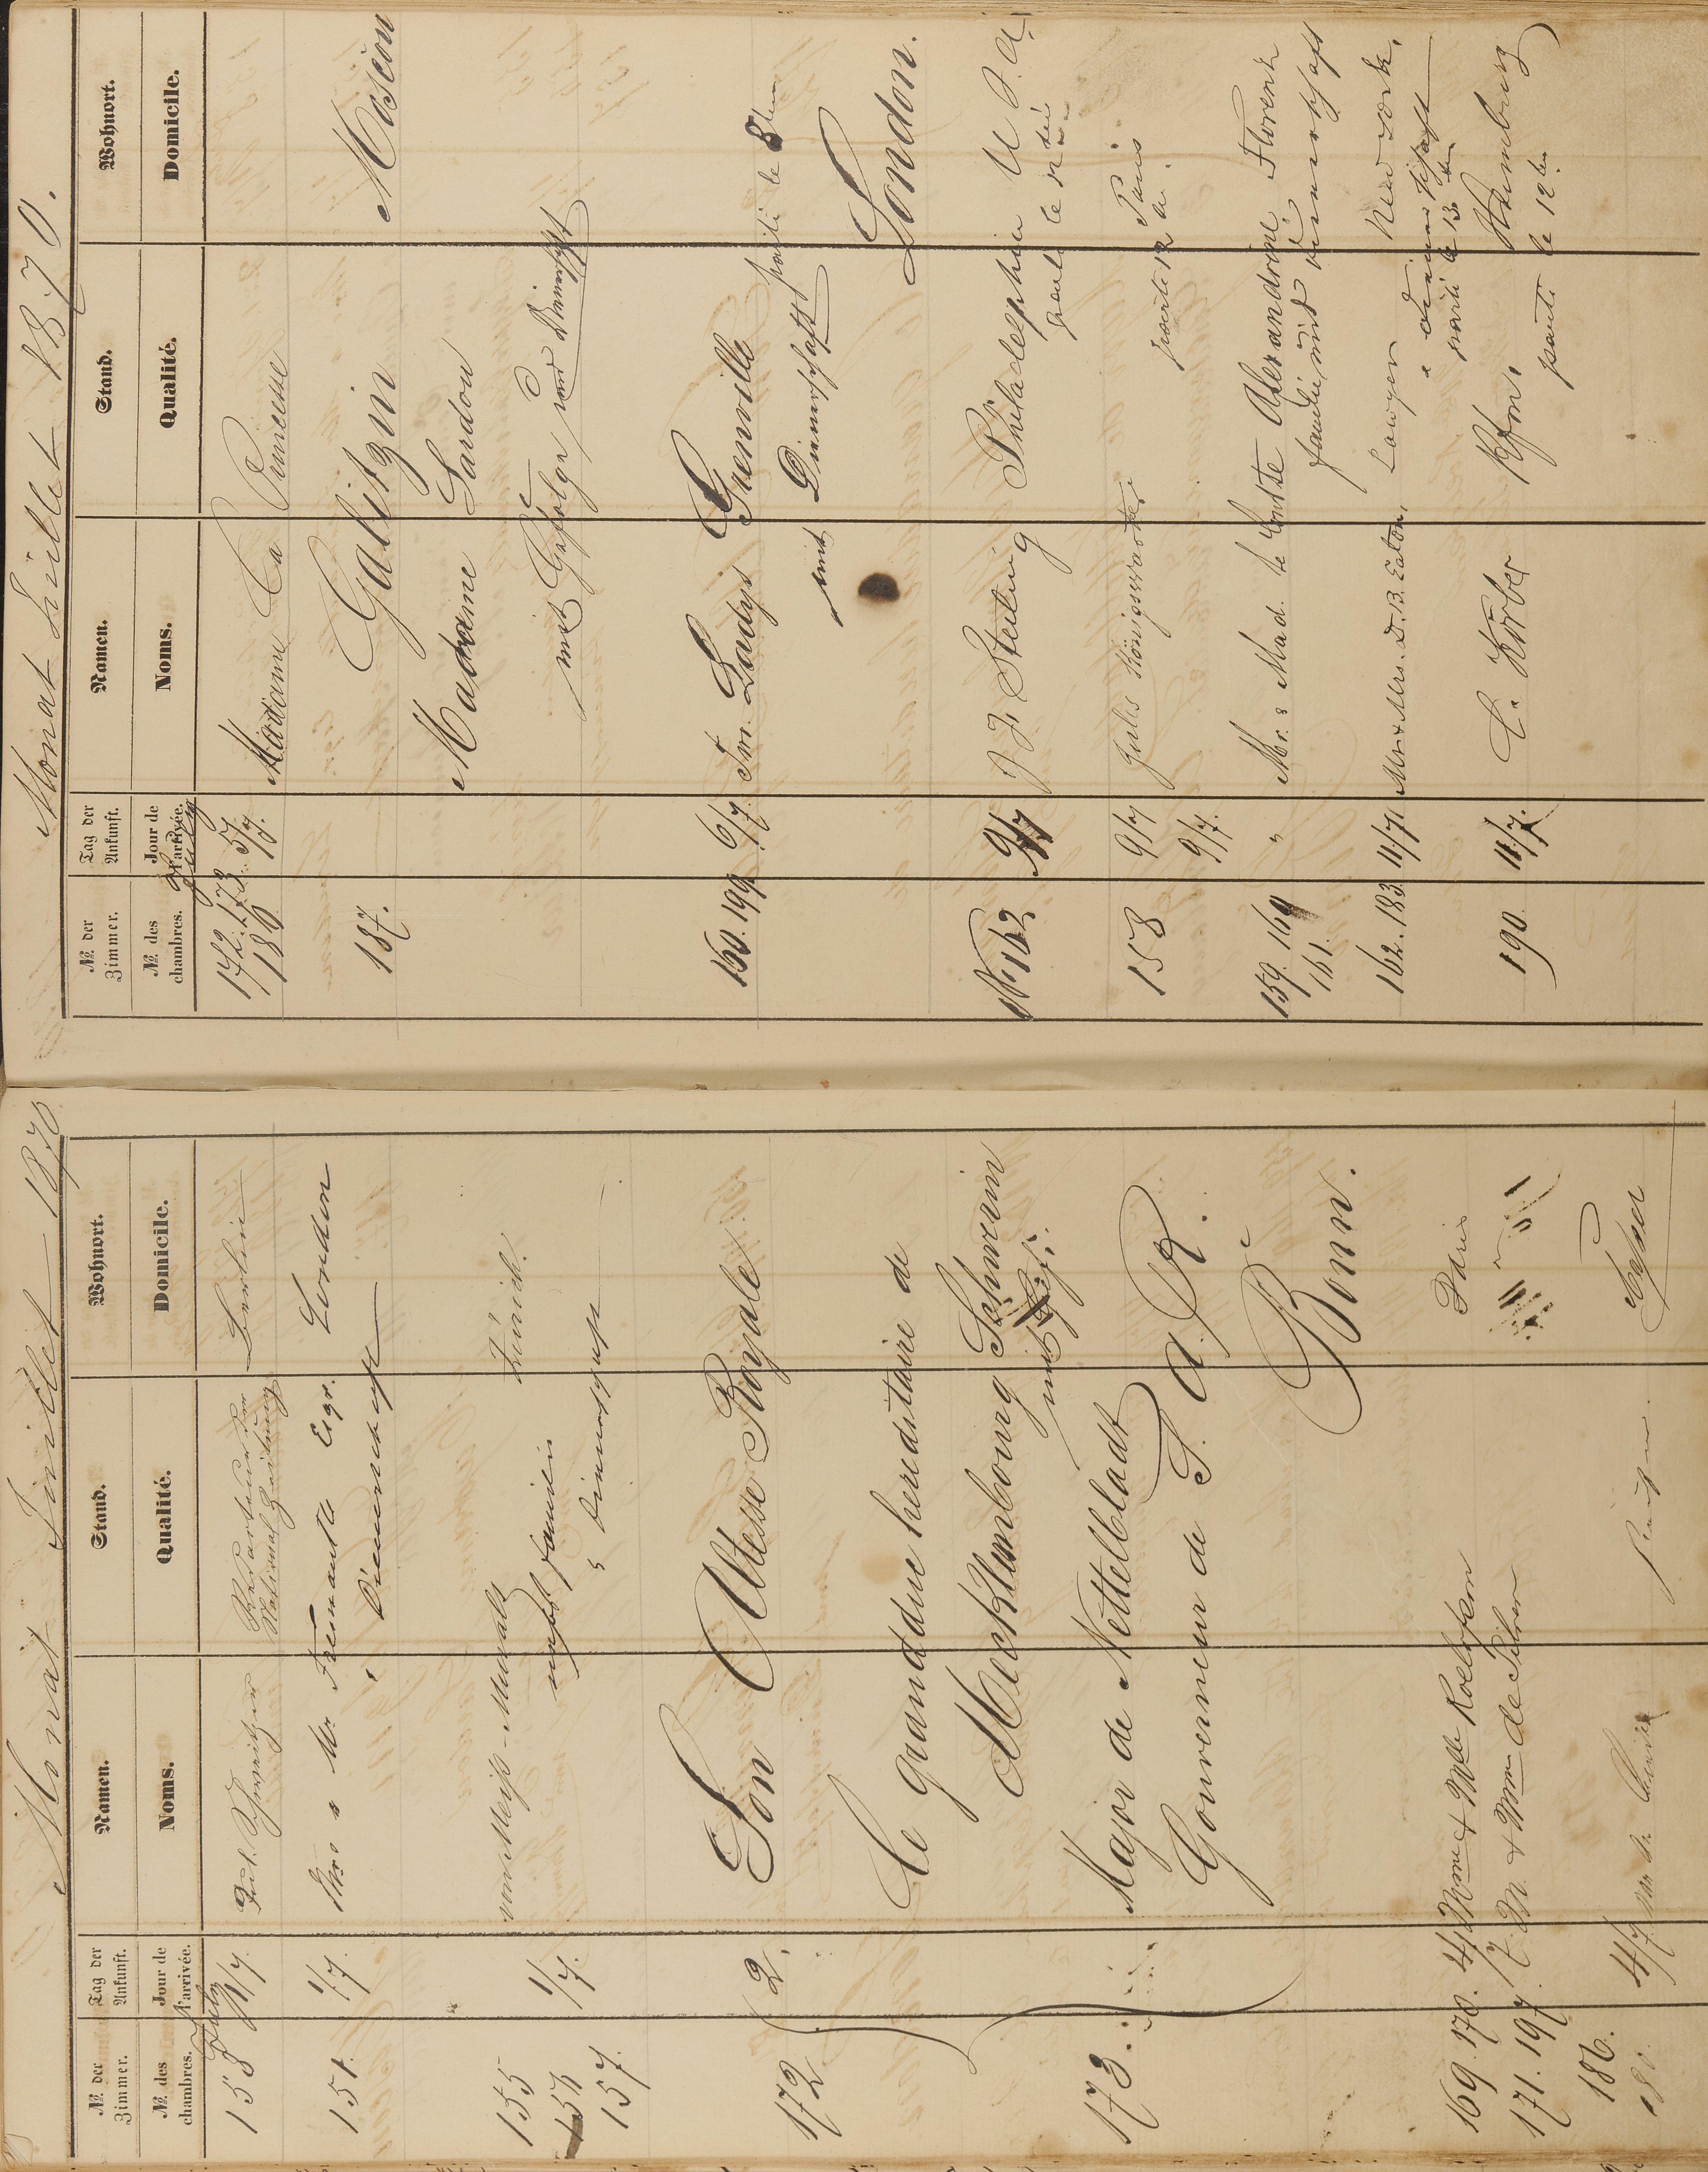 Monat Juillet 1870
№ der Zimmer. Tag der Ankunft. Namen. Stand. Wohnort.
№ des chambres. Jour de l'arrivée. Noms. Qualité. Domicile.
July
158 1/7 Schweitzer Redacteur der National Zeitung Berlin
151. 1/7. Mrs & Mr Fremantle Esqr. London
Dienerschaft
155 von Meiss-Muralt Zürich.
156 1/7. nebst Familie
157. " Dienerschaft
172 2. Son Altesse Royale
Le Grandduc hereditaire de
Mecklembourg Schwerin
mit
173. Major de Nettelbladt
Gouverneur de S. A. R.
Bonn.
169. 170. 4/7 Mme & Mlle Paris
171. 197. M. & Mme de
186. 4/7
Monat Juillet 1870.
№ der Zimmer. Tag der Ankunft. Namen. Stand. Wohnort.
№ des chambres. Jour de l'arrivée. Noms. Qualité. Domicile.
July
172. 173. 5/7. Madame La Princesse
186
187. Galitzin Moscou
Madame Sardou
mit Gefolge und Dienerschaft
160. 199. 6/7. Ladys Grenville
mit Dienerschaft parti le 8ten
London.
№ 162 9/7 J. F. Sterling Philadelphia U S. A.
158 9/7 Jules Königswarter Paris
9/7.
159. 160 " Mr. & Mad. le Comte Alexandrine Florenz
161. familie mit Dienerschaft
162. 183. 11/7 Mr & Mrs. D. B. Eaton. Lawyer New York.
" Dienerschaft
parti le 13 ten
190. 11/7. C. Körber Hamburg
parti le 12 ten.